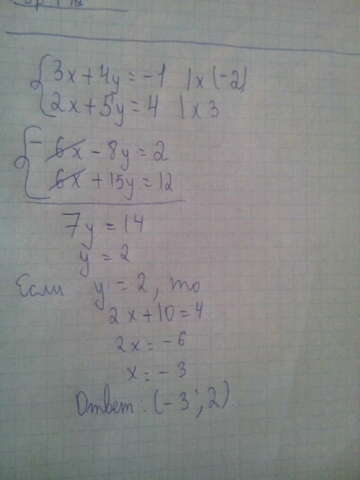 {3x+4y=-1 |x(-2)
{2x+5y=4 |x3
{-6x-8y=2
{6x+15y=12
7y=14
y=2
Если y=2, то
2x+10=4
2x=-6
x=-3
Ответ: (-3; 2)